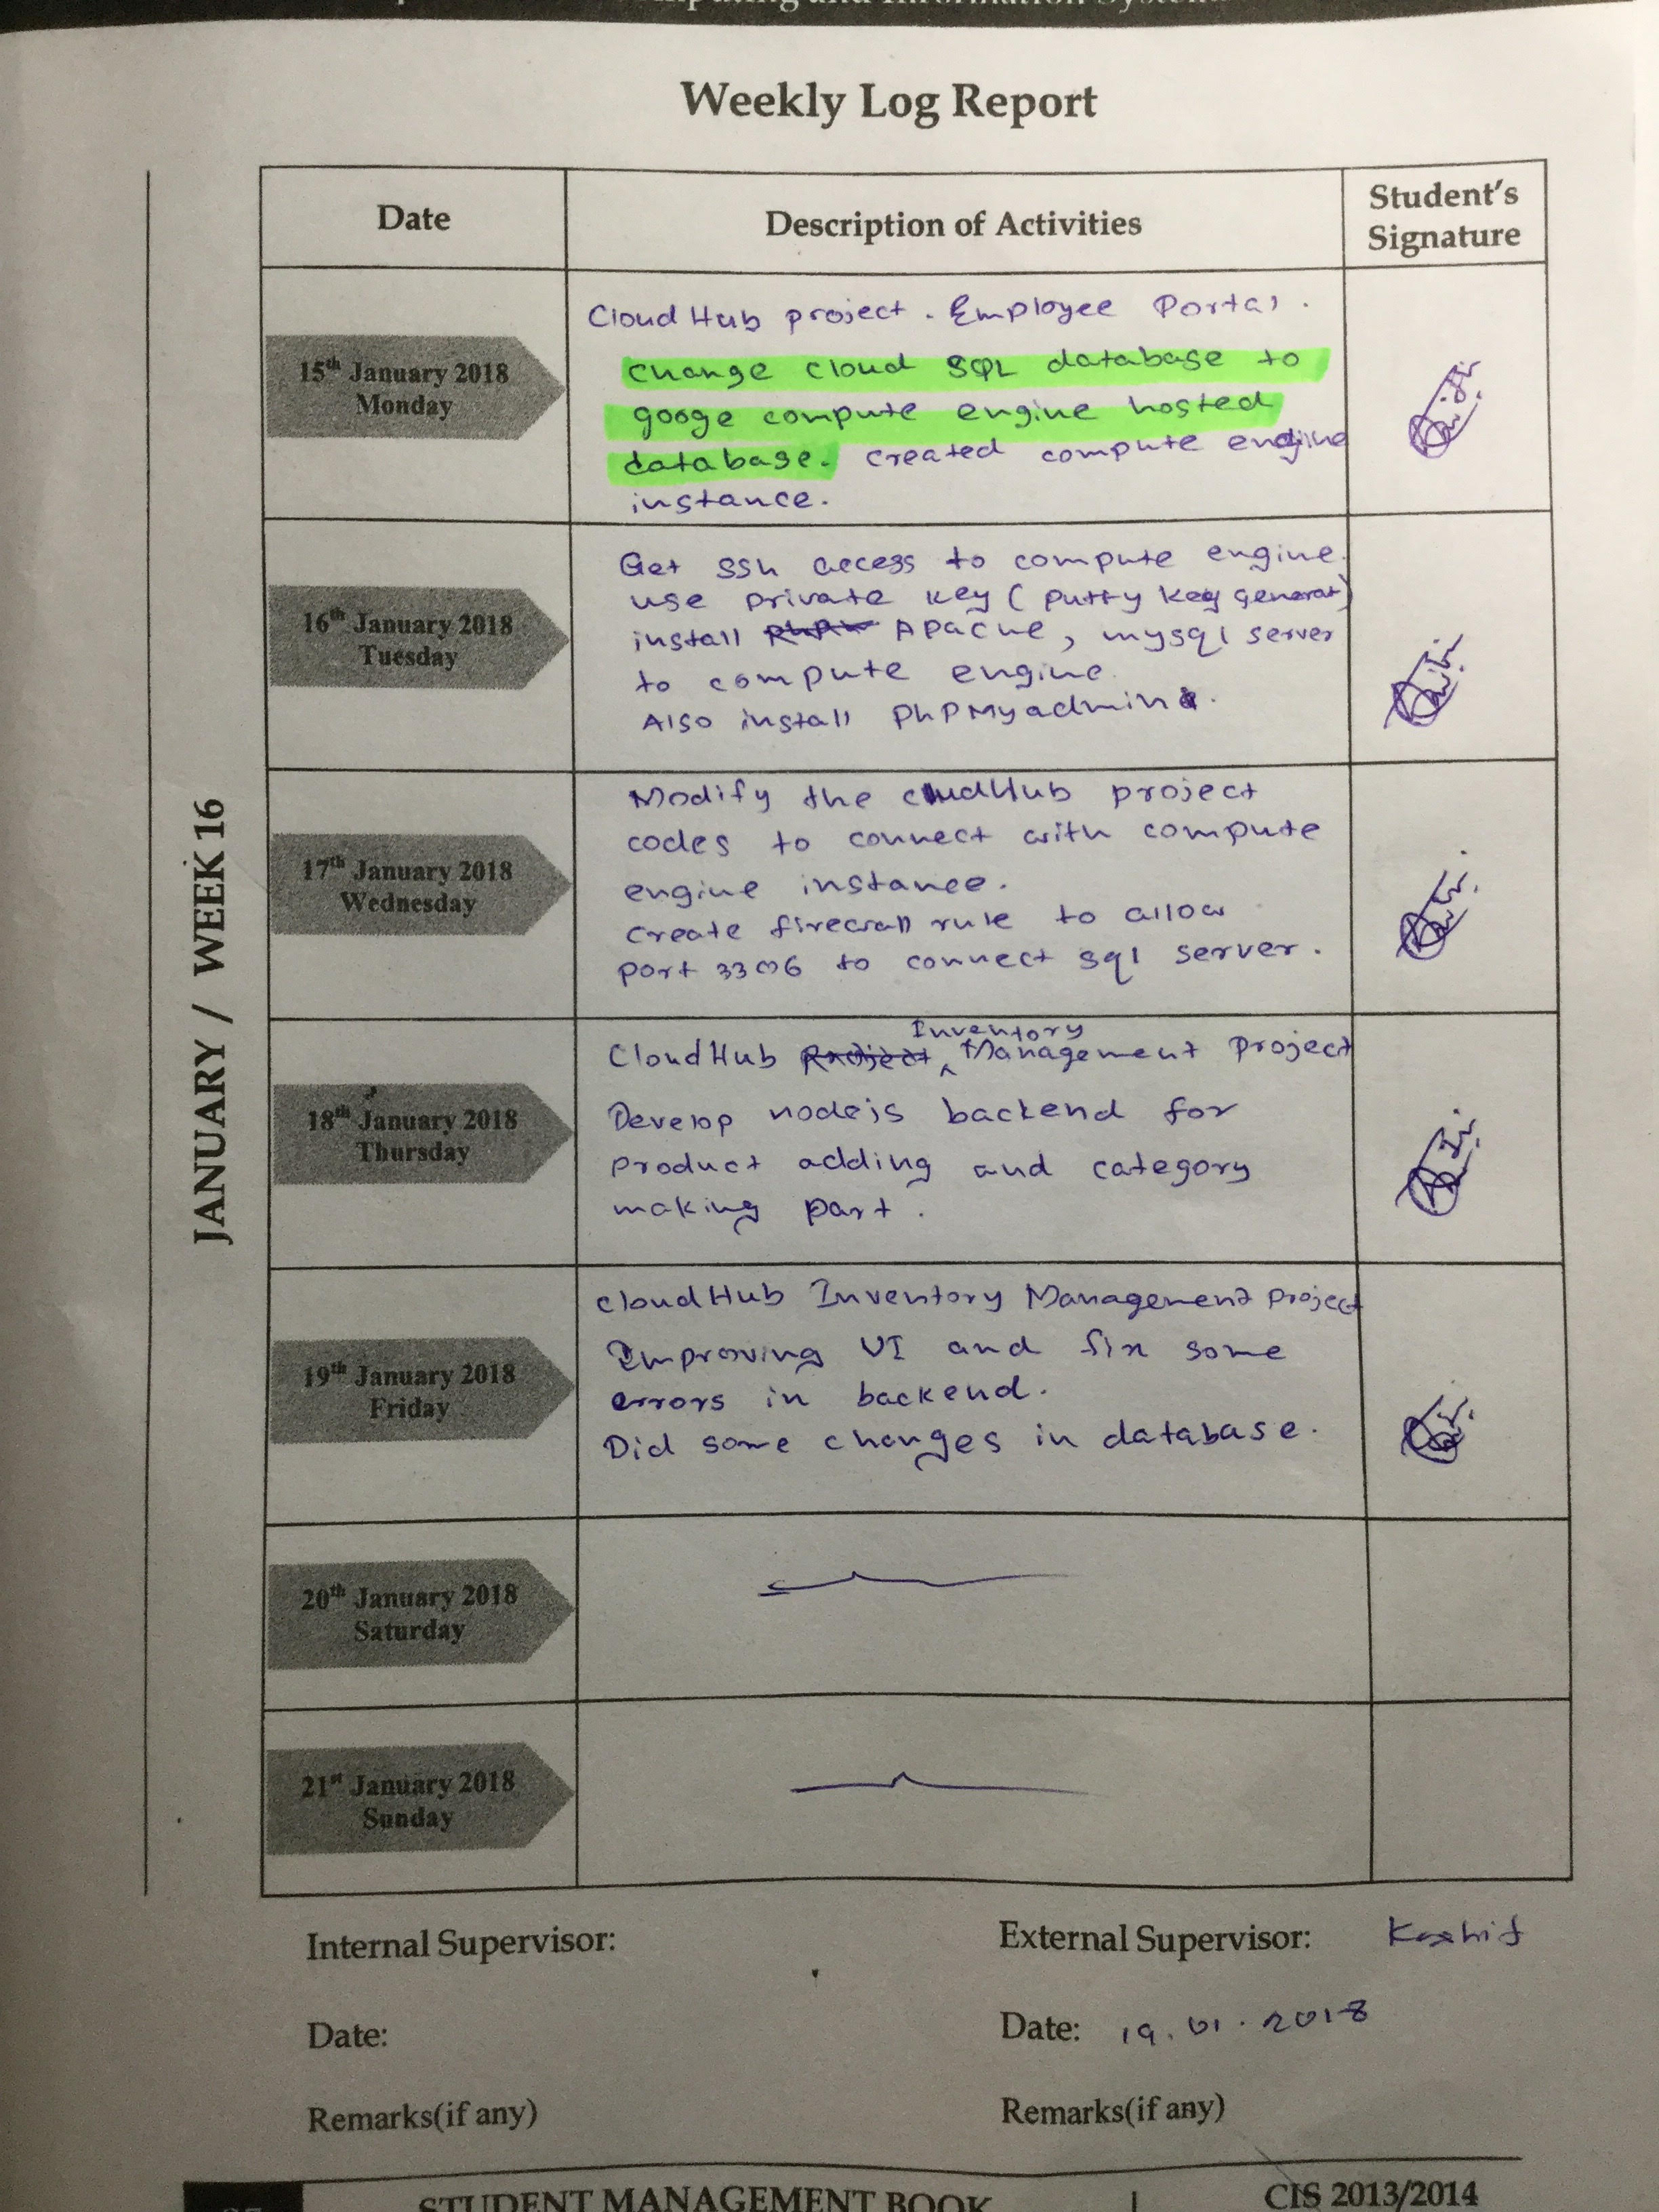 Computing and Information Systems
Weekly Log Report
JANUARY / WEEK 16
Date
Description of Activities
Student's
Signature
15th January 2018
Monday
CloudHub project. Employee Portal.
change cloud SQL database to
googe compute engine hosted
database. created compute engine
instance.
16th January 2018
Tuesday
Get ssh access to compute engine.
use private key (putty key generat)
install Apache, mysql server
to compute engine.
Also install PhPMyadmin.
17th January 2018
Wednesday
Modify the cloudHub project
codes to connect with compute
engine instance.
create firewall rule to allow
port 3306 to connect sql server.
18th January 2018
Thursday
Inventory
CloudHub Project Management Project
Develop nodejs backend for
product adding and category
making part.
19th January 2018
Friday
cloudHub Inventory Management project
Improving UI and fix some
errors in backend.
Did some changes in database.
20th January 2018
Saturday
21st January 2018
Sunday
Internal Supervisor:
External Supervisor: Kashif
Date:
Date: 19.01.2018
Remarks(if any)
Remarks(if any)
STUDENT MANAGEMENT BOOK | CIS 2013/2014